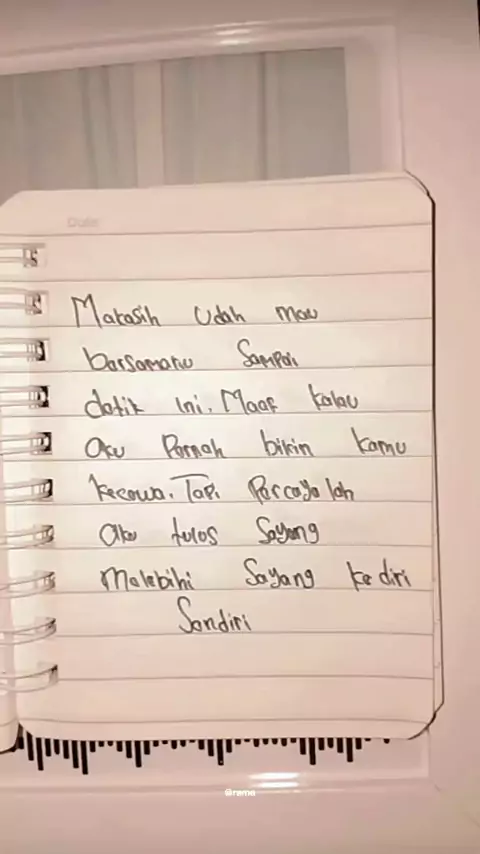 Date
Makasih udah mau
bersamaku sampai
detik ini. Maaf kalau
aku Pernah bikin kamu
kecewa. Tapi Percayalah
aku tulos Sayang
Melebihi Sayang ke diri
Sendiri
@rama